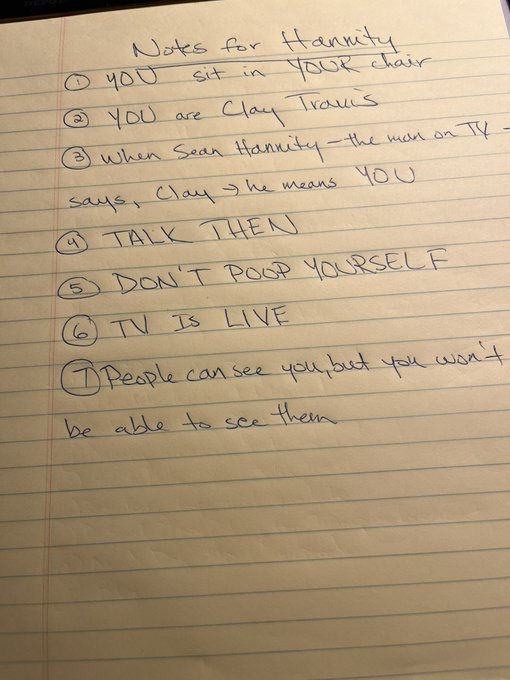 Notes for Hannity
① YOU sit in YOUR chair
② YOU are Clay Travis
③ When Sean Hannity - the man on TV -
says, Clay → he means YOU
④ TALK THEN
⑤ DON'T POOP YOURSELF
⑥ TV IS LIVE
⑦ People can see you, but you won't
be able to see them